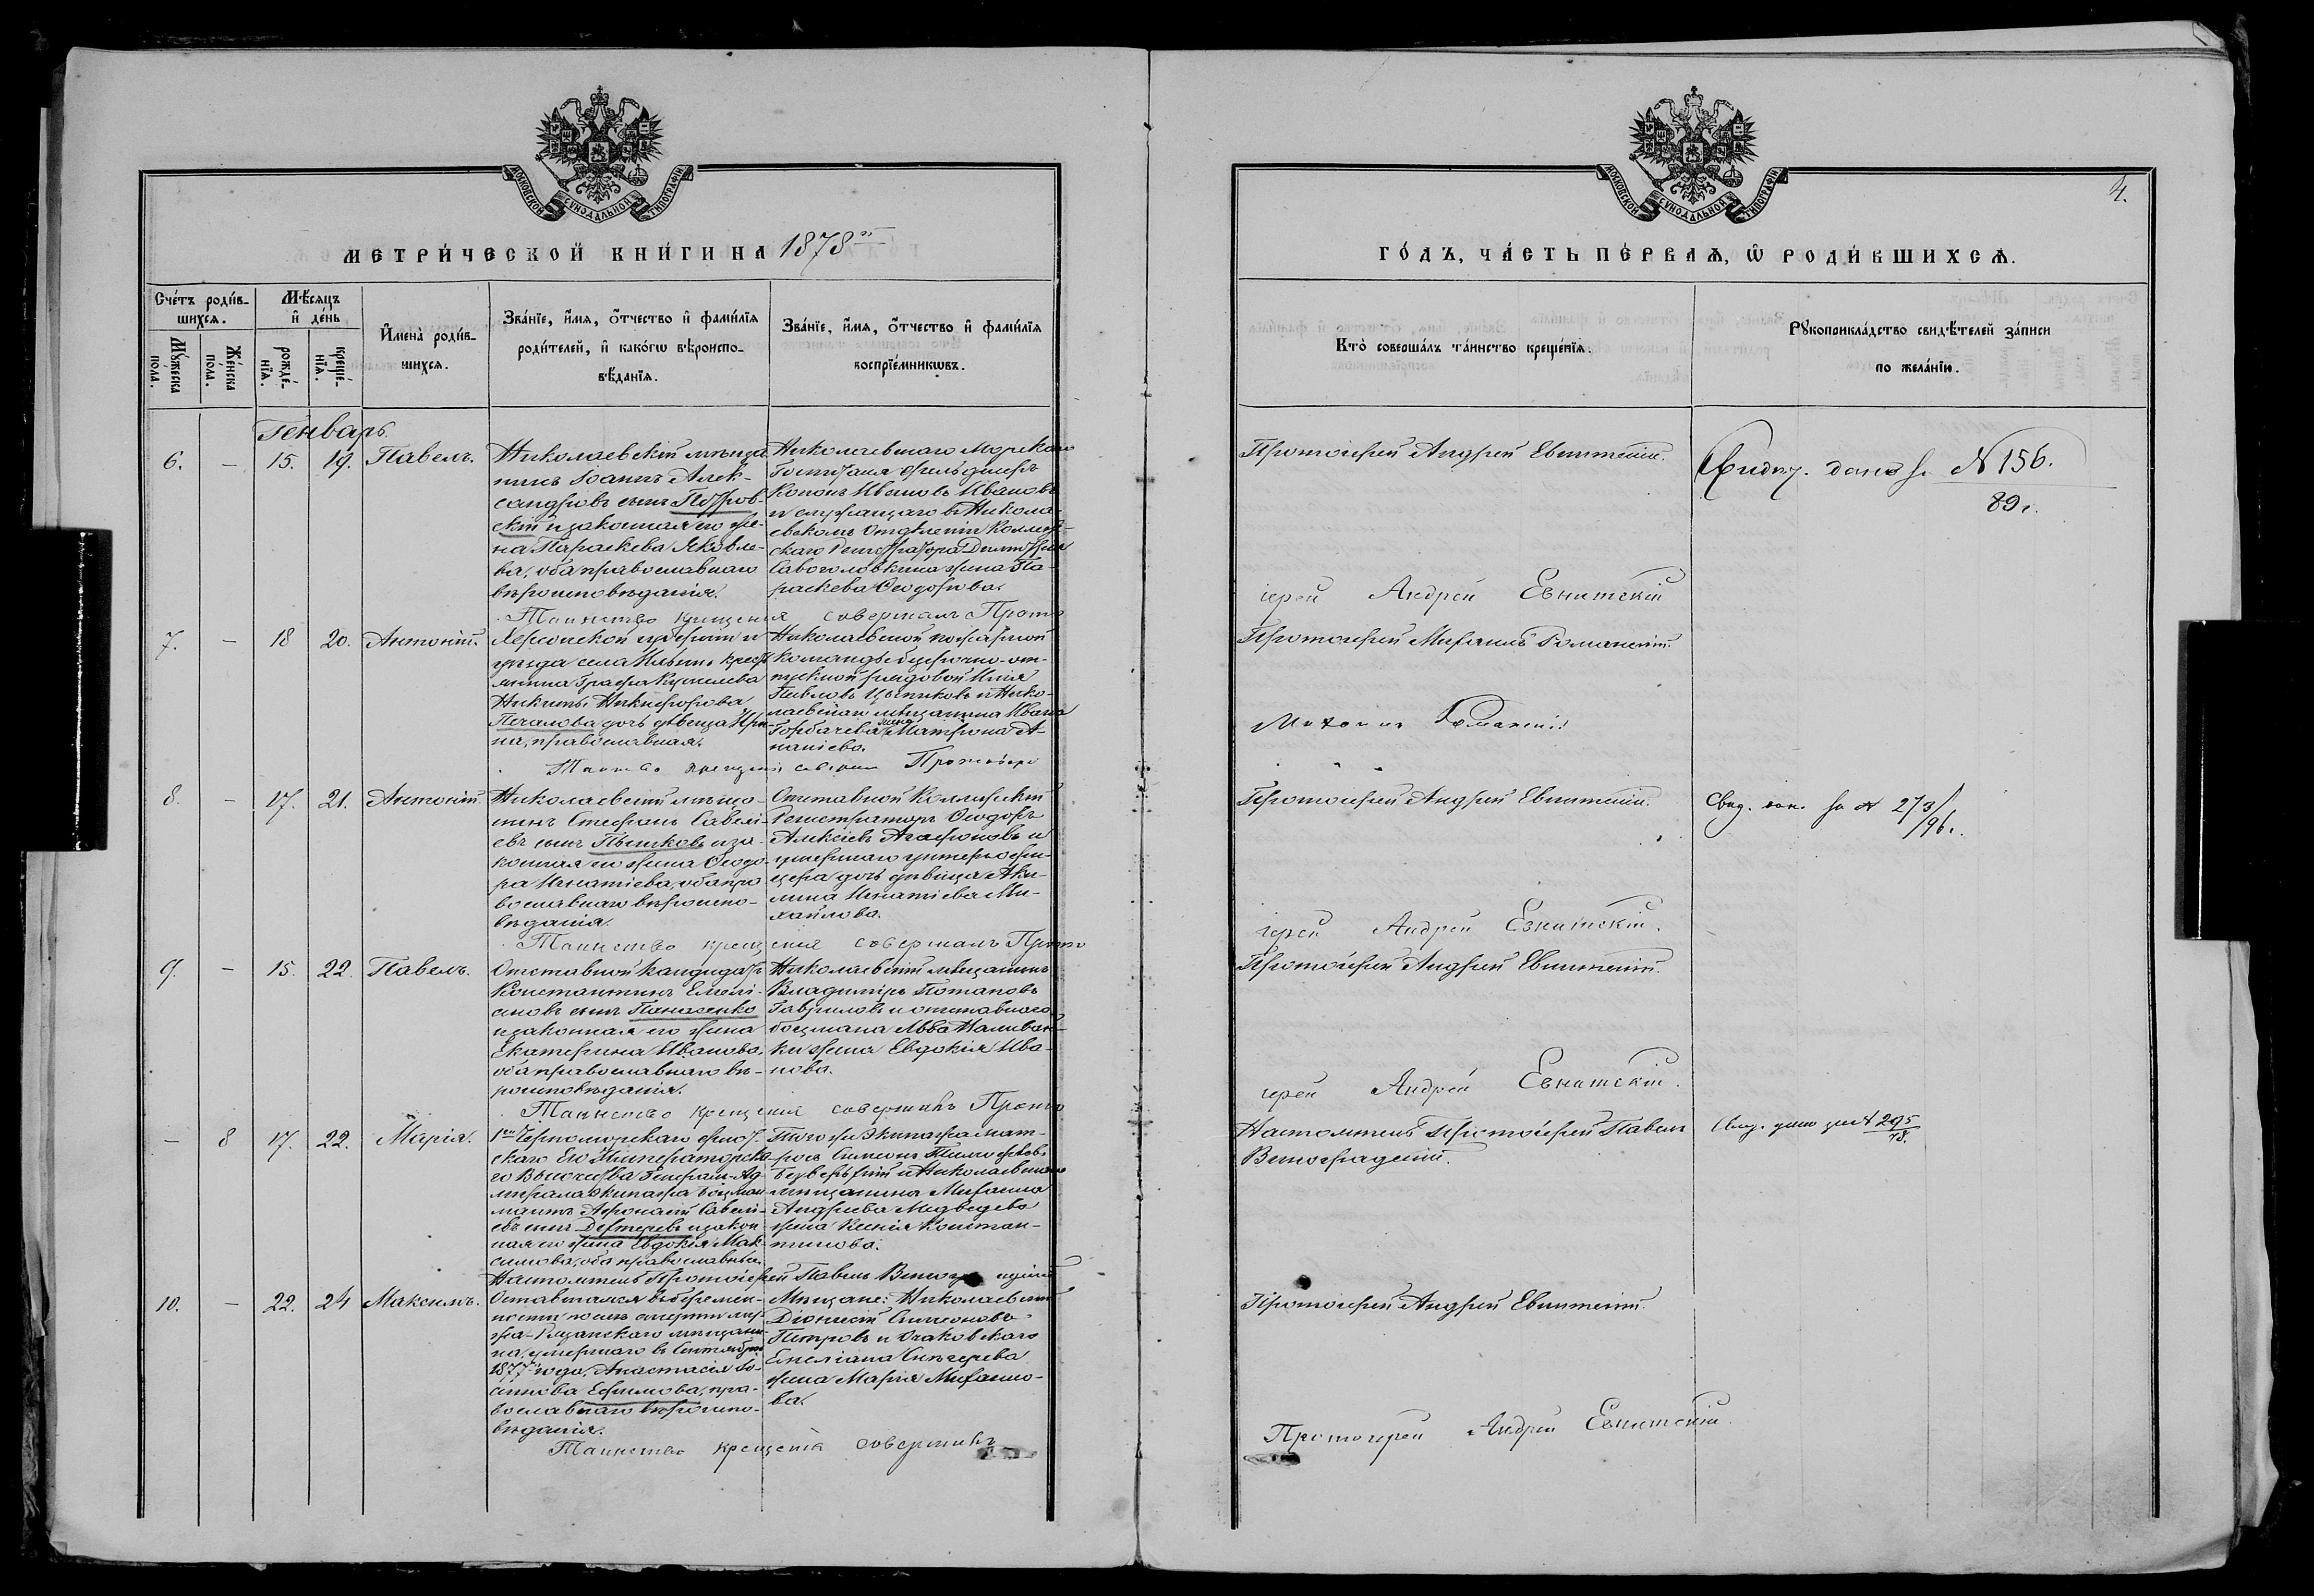 МОСКОВСКОЙ СѴНОДАЛЬНОЙ ТИПОГРАФІИ
МЕТРИ́ЧЕСКОЙ КНИ́ГИ НА 1878
Сче́тъ роди́в-
шихсѧ.
Мѣ́сѧцъ
и҆ де́нь
Мꙋ́жеска
пола.
Же́нска
пола.
рожде́-
нїѧ.
креще́-
нїѧ.
И҆мена̀ роди́в-
шихсѧ.
Зва́нїе, и҆́мѧ, ѻ҆́тчество и҆ фами́лїѧ
роди́телей, и҆ како́гѡ вѣроиспо-
вѣ́данїѧ.
Зва́нїе, и҆́мѧ, ѻ҆́тчество и҆ фами́лїѧ
воспрїе́мникѡвъ.
Генварь.
6. – 15. 19. Павелъ.
Николаевскій мѣща
нинъ Іоаннъ Алек-
сандровъ сынъ Петров-
скій и законная его же-
на Параскева Яковле-
ва, оба православнаго
вѣроисповѣданія.
Николаевскаго Морскаго
Госпиталя фельдшеръ
Кононъ Ивановъ Ивановъ
и служащаго въ Никола-
евскомъ Отдѣленіи Коллеж-
скаго Регистратора Димитрія
жена Па-
раскева Ѳеодорова.
Таинство крещенія совершалъ Прото
7. – 18 20. Антоній.
Херсонской губерніи и
уѣзда села кресть
янина Графа Кушелева
Никиты Никифорова
дочь дѣвица Ири-
на, православная.
Николаевской пожарной
команды безсрочно-от-
пускной рядовой Илія
Павловъ и Нико-
лаевскаго мѣщанина Ивана
Горбачева жена Матрона А-
наніева.
8. – 17. 21. Антоній.
Николаевскій мѣща-
нинъ Стефанъ Савелі-
евъ сынъ и за-
конная его жена Ѳеодо-
ра Игнатіева, оба пра
вославнаго вѣроиспо-
вѣданія.
Отставной Коллежскій
Регистраторъ Ѳеодоръ
Алексіевъ Агафоновъ и
умершаго унтеръ-офи-
цера дочь дѣвица Аки-
лина Игнатіева Ми-
хайлова.
Таинство крещенія совершалъ Прото
9. – 15. 22. Павелъ.
Отставной Кандидатъ
Константинъ Емелі-
ановъ сынъ Панасенко
и законная его жена
Екатерина Иванова,
оба православнаго вѣ-
роисповѣданія.
Николаевскій мѣщанинъ
Владиміръ Потаповъ
Гавриловъ и отставнаго
боцмана Льва Наливай-
ки жена Евдокія Ива-
нова.
Таинство крещенія совершилъ Прото
– 8 17. 22. Марія.
1го Черноморскаго флот-
скаго Его Императорска-
го Высочества Генералъ-Ад-
мирала экипажа боцман
матъ Савелі-
евъ сынъ Дегтеревъ и закон
ная его жена Евдокія Мак-
симова, оба православные.
Того же экипажа мат-
росъ Симеонъ
и Николаевскаго
мѣщанина Михаила
Андреева Медведева
жена Ксенія Констан-
тинова.
Настоятель Протоіерей Павелъ
10. – 22. 24 Максимъ.
Оставшаяся въ беремен-
ности послѣ смерти му-
жа мѣщани
на, умершаго въ Сентябрѣ
1877го года, Анастасія Іо-
сипова Ефимова, пра-
вославнаго вѣроиспо-
вѣданія.
Мѣщане: Николаевскій
Діонисій Симеоновъ
Петровъ и Очаковскаго
Емеліана
жена Марія Михаило-
ва.
Таинство крещенія совершилъ
МОСКОВСКОЙ СѴНОДАЛЬНОЙ ТИПОГРАФІИ
4.
ГО́ДЪ, ЧА́СТЬ ПЕ́РВАѦ, Ѡ҆ РОДИ́ВШИХСѦ.
Кто̀ соверша́лъ та́инство креще́нїѧ.
Рꙋкоприкла́дство свидѣ́телей за́писи
по жела́нїю.
Протоіерей Андрей Евнитскій.
дано за N 156.
89 г.
іерей Андрей Евнитскій
Протоіерей Михаилъ Романскій.
Михаилъ Романскій
Протоіерей Андрей Евнитскій.
Свид. дан. за N 273/
/96 г.
іерей Андрей Евнитскій.
Протоіерей Андрей Евнитскій.
іерей Андрей Евнитскій.
Настоятель Протоіерей Павелъ
Виноградскій.
Свид. дано за N 295
78.
Протоіерей Андрей Евнитскій.
Протоіерей Андрей Евнитскій.